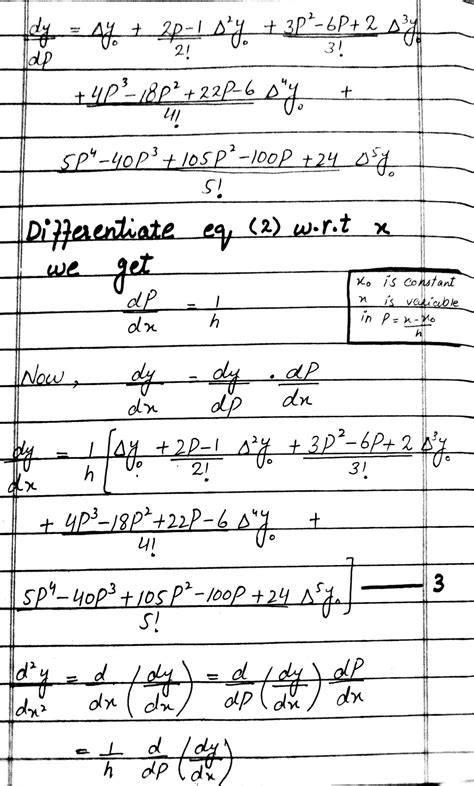 dy/dP = Δy₀ + (2P-1)/2! Δ²y₀ + (3P²-6P+2)/3! Δ³y₀
+ (4P³-18P²+22P-6)/4! Δ⁴y₀ +
(5P⁴-40P³+105P²-100P+24)/5! Δ⁵y₀
Differentiate eq (2) w.r.t x
we get
dP/dx = 1/h
x₀ is constant
x is variable
in P = (x-x₀)/h
Now, dy/dx = dy/dP · dP/dx
dy/dx = 1/h [Δy₀ + (2P-1)/2! Δ²y₀ + (3P²-6P+2)/3! Δ³y₀
+ (4P³-18P²+22P-6)/4! Δ⁴y₀ +
(5P⁴-40P³+105P²-100P+24)/5! Δ⁵y₀] — 3
d²y/dx² = d/dx (dy/dx) = d/dP (dy/dx) dP/dx
= 1/h d/dP (dy/dx)